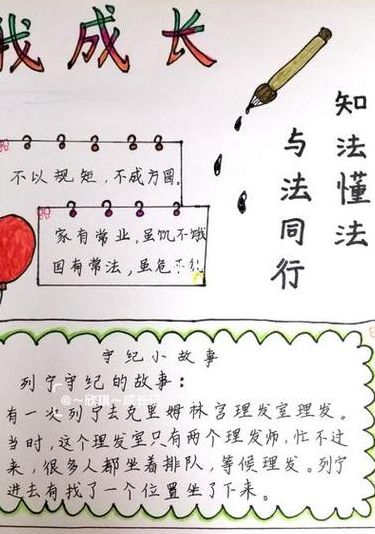 我成长
知法懂法
与法同行
不以规矩,不成方圆。
家有常业,虽饥不饿
国有常法,虽危不乱
守纪小故事
列宁守纪的故事:
@~欣琪~成长
有一次列宁去克里姆林宫理发室理发。
当时,这个理发室只有两个理发师,忙不过
来,很多人都坐着排队,等候理发。列宁
进去有找了一个位置坐了下来。